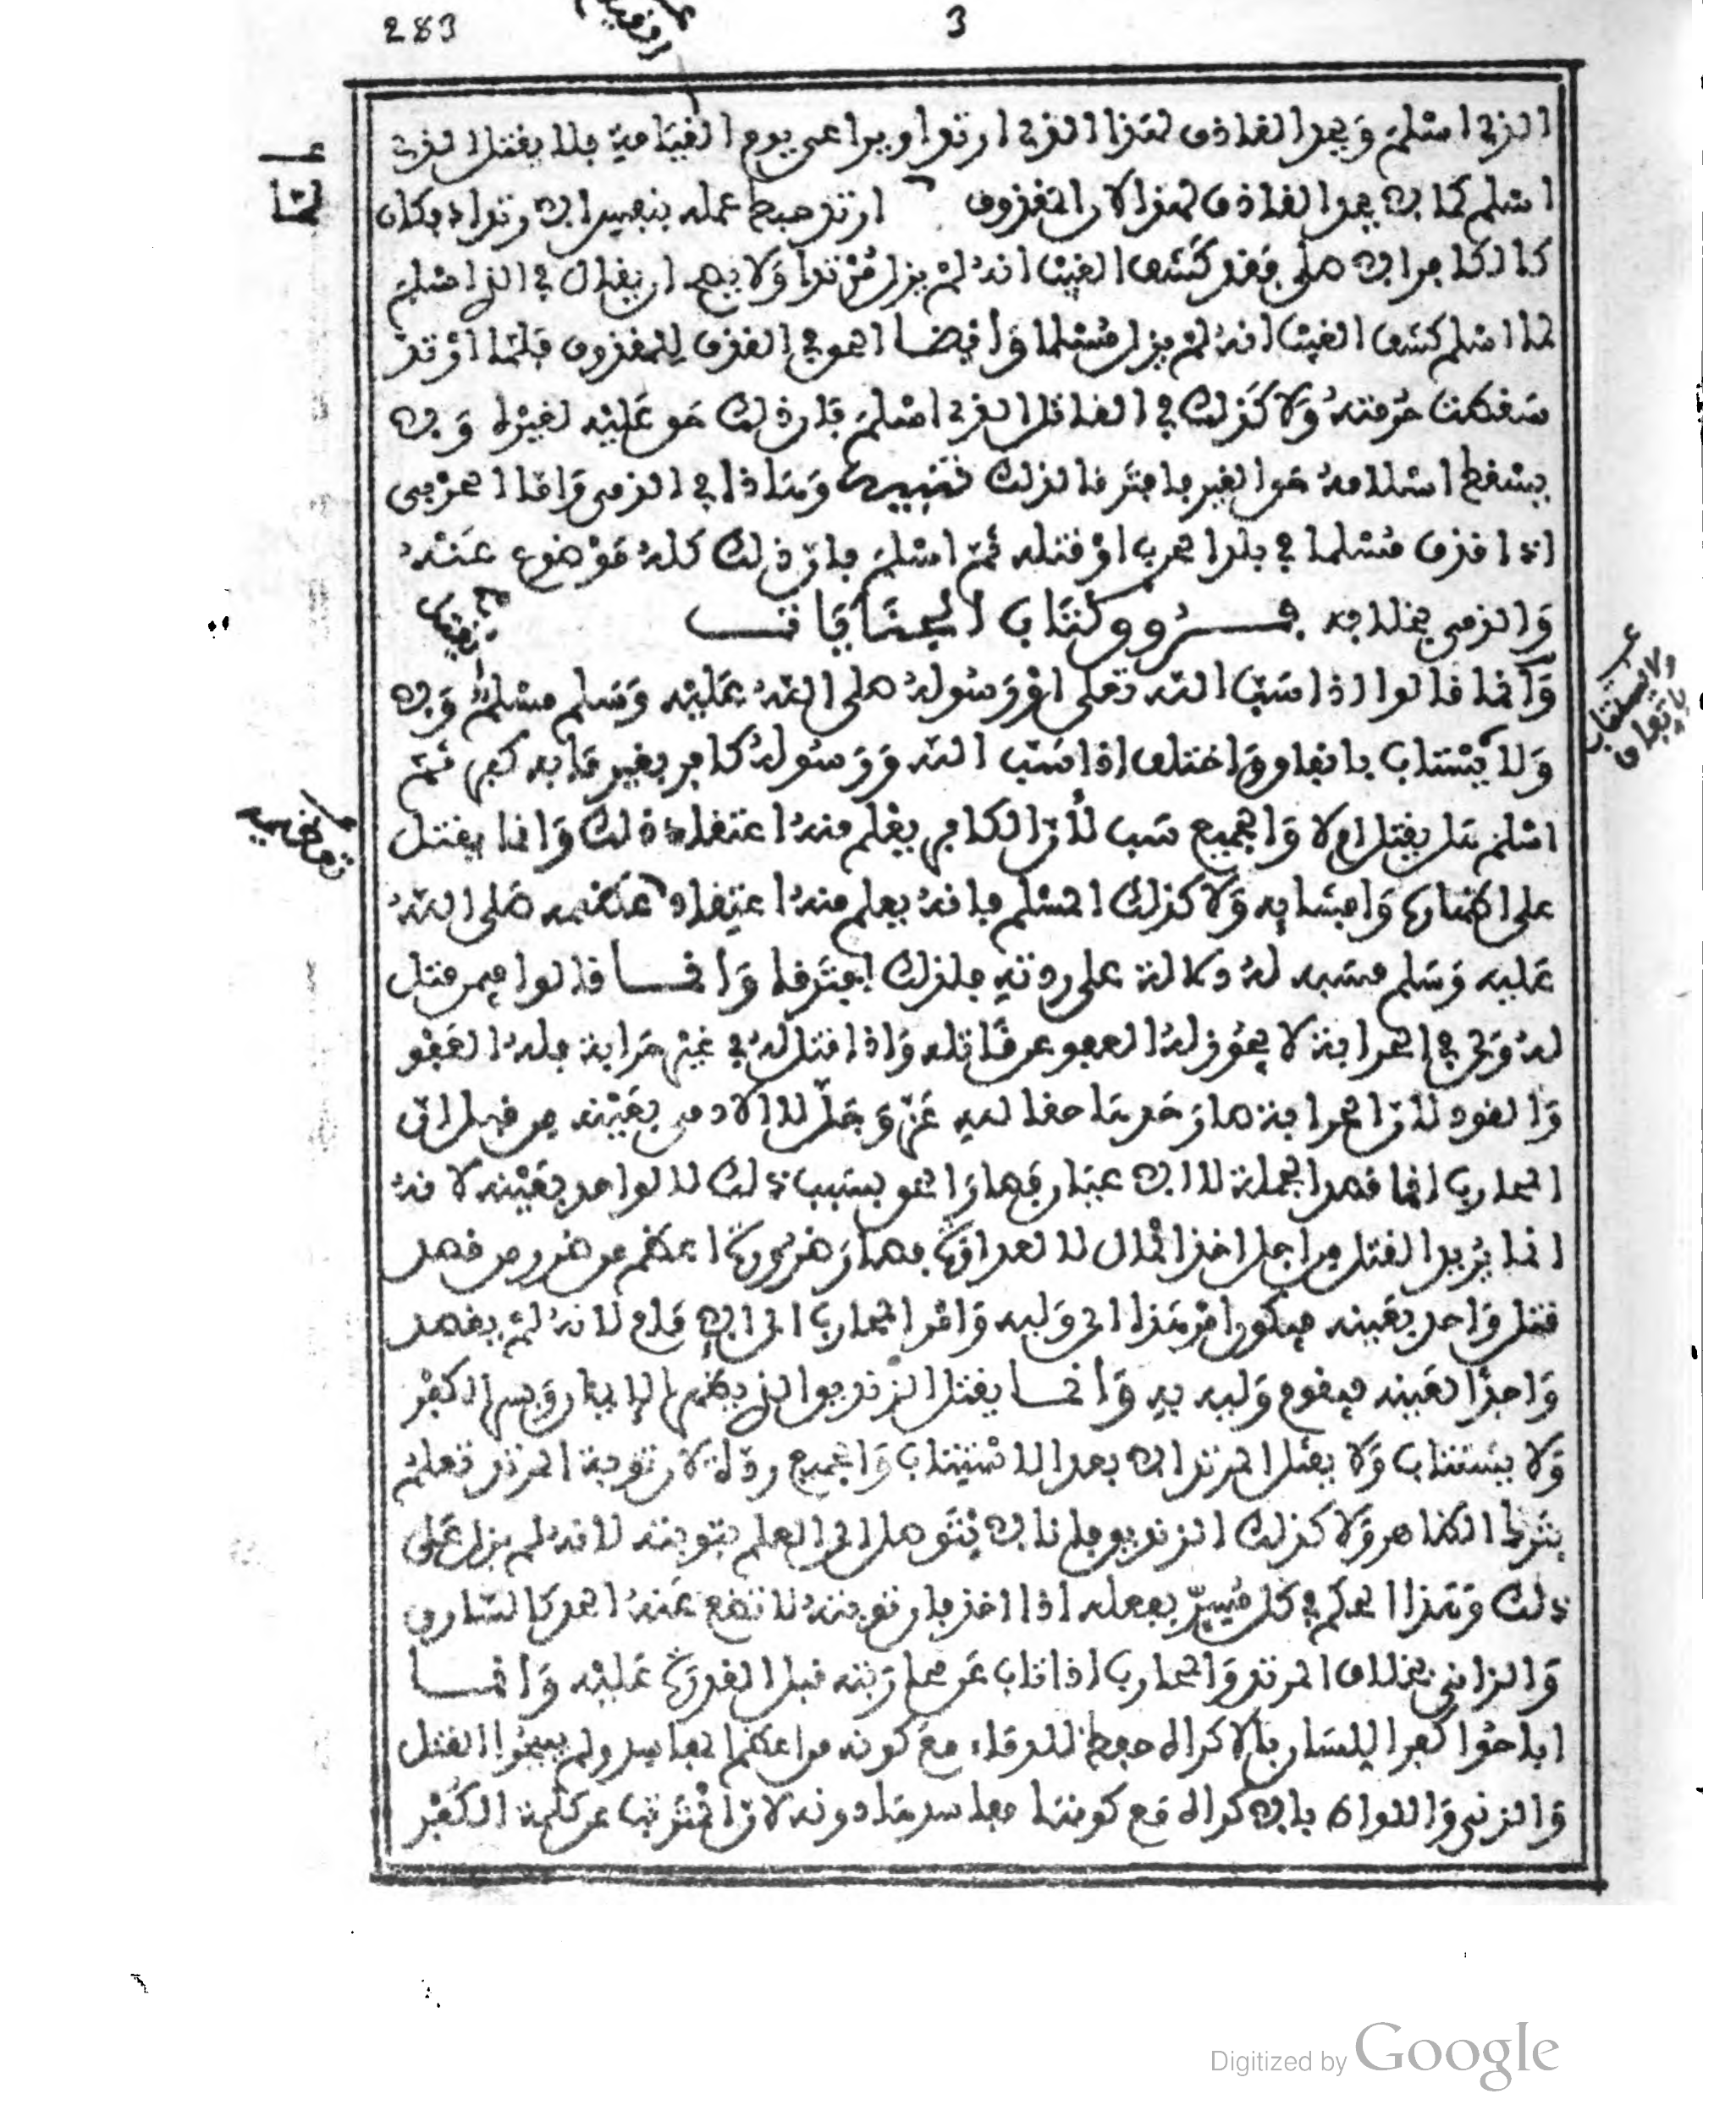 283
3
الذي اسلم ويحد القاذف لهذا الذي ارتد او يراعى يوم القيامة فلا يقتل الذي
لما
اسلم كما لا يحد القاذف لهذا لان المقذوف ارتد حبط عمله بنفس الارتداد فكان
كالكافر الاصلي فقد كشف الغيب انه لم يزل مرتدا ولا يصح ان يقال في الذي اسلم
لما اسلم كشف الغيب انه لم يزل مسلما وايضا الحق في القذف للمقذوف فلما ارتد
سقطت حرمته ولا كذلك في القاتل الذي اسلم فان ذلك حق عليه لغيره ولا
يسقط اسلامه حق الغير فافترقا لذلك تنبيه وهذا في الذمي واما الحربي
اذا قذف مسلما في بلد الحرب او قتله ثم اسلم فان ذلك كله موضوع عنه
والذمي بخلافه فروق كتاب الجنايات
وانما قالوا اذا سب الله تعلى او رسوله صلى الله عليه وسلم مسلم ولا
ولا يستتاب باتفاق واختلف اذا سب الله ورسوله كافر بغير ما به كفر ثم
اسلم هل يقتل ام لا والجميع سب لان الكافر يعلم منه اعتقاد ذلك وانما يقتل
على اظهاره وافشائه ولا كذلك المسلم فانه يعلم منه اعتقاد عظمه صلى الله
عليه وسلم فسبه له دلالة على ردته فلذلك افترقا وانما قالوا فيمن قتل
له ولي في الحرابة لا يجوز له العفو عن قاتله واذا قتل له في غير حرابة فله العفو
والقود لان الحرابة صار حدها حقا لله عز وجل لا لادمي بعينه من قبل ان
المحارب انما قصد الجملة لا الاعيان فصار الحق بسبب ذلك لا لواحد بعينه لانه
انما يريد القتل من اجل اخذ المال لا لعداوة فصار ضرره اعظم من ضرر من قصد
قتل واحد بعينه فيكون امر هذا الى وليه وامر المحارب الى الامام لانه لم يقصد
واحدا بعينه فيقوم وليه به وانما يقتل الزنديق الذي يظهر الايمان ويسر الكفر
ولا يستتاب ولا يقتل المرتد الا بعد الاستتاب والجميع ردة لان توبة المرتد تعلم
بترك الظاهر ولا كذلك الزنديق فلنا لا يتوصل الى العلم بتوبته لانه لم يزل على
ذلك وهذا الحكم في كل مسر بفعله اذا اخذ فان توبته لا تضع عنه الحد كالسارق
والزاني بخلاف المرتد والمحارب اذا تاب عن محاربته قبل القدرة عليه وانما
اباحوا كفر اللسان بالاكراه حفظ للدماء مع كونه من اعظم المفاسد ولم يبيحوا القتل
والزنى واللواط بالاكراه مع كونها مفاسدها دونه لان المترتب عن كلمة الكفر